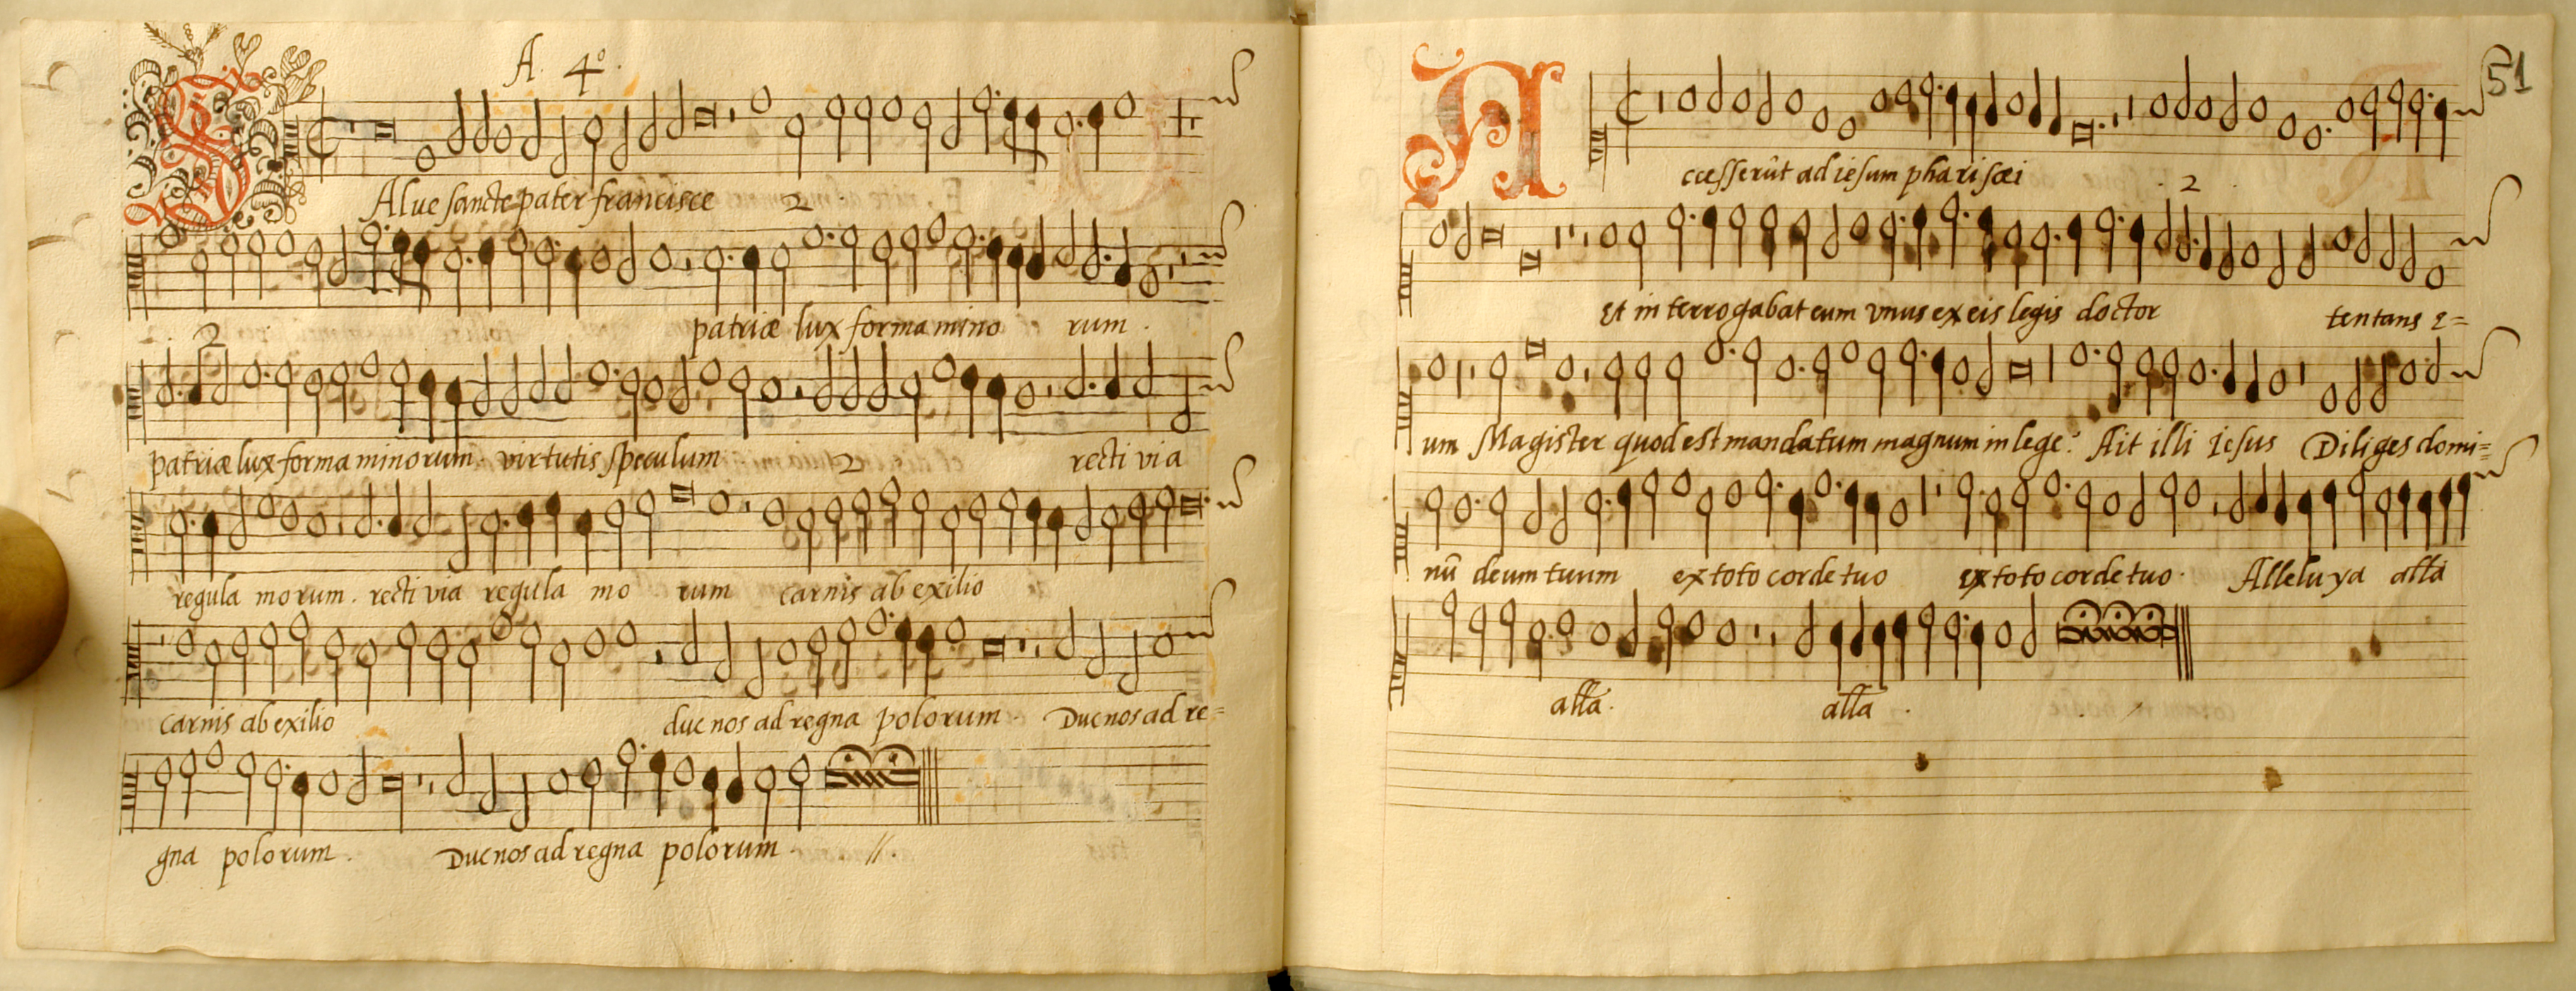 A. 4º.
SAlve sancte pater francisce 2
patriæ lux forma mino rum.
2
patriæ lux forma minorum. virtutis speculum 2 recti via
regula morum. recti via regula mo rum carnis ab exilio
carnis ab exilio duc nos ad regna polorum. Duc nos ad re=
gna polorum. Duc nos ad regna polorum. //.
51
Accesserût ad iesum pharisæi
. 2 .
Et interrogabat eum unus ex eis legis doctor tentans e=
um Magister quod est mandatum magnum in lege? Ait illi Iesus Diliges domi=
nũ deum tuum ex toto corde tuo ex toto corde tuo. Alleluya alla
alla. alla.